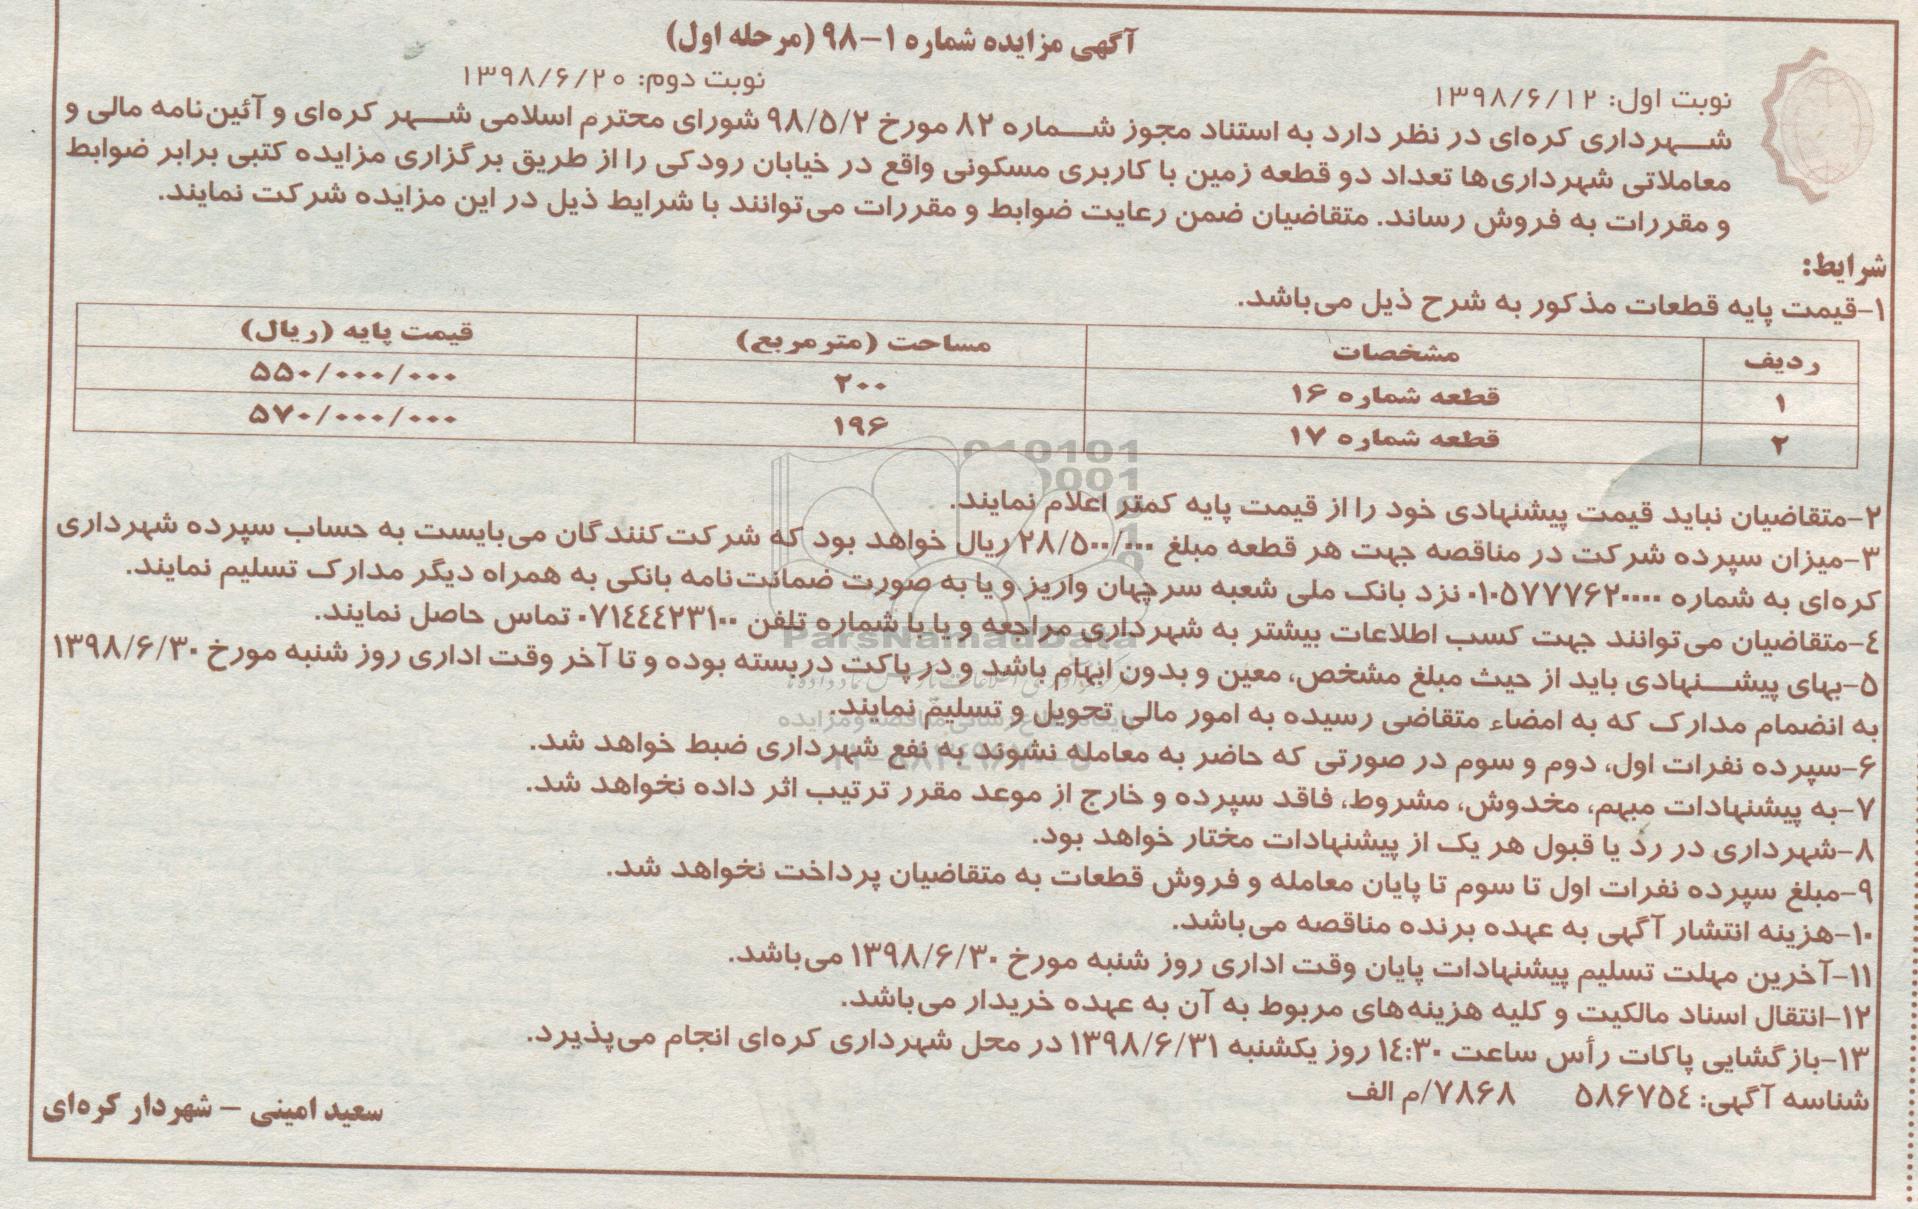 آگهی مزایده شماره ۱-۹۸ (مرحله اول)
نوبت اول: ۱۳۹۸/۶/۱۲
نوبت دوم: ۱۳۹۸/۶/۲۰
شهرداری کره‌ای در نظر دارد به استناد مجوز شماره ۸۲ مورخ ۹۸/۵/۲ شورای محترم اسلامی شهر کره‌ای و آئین‌نامه مالی و
معاملاتی شهرداری‌ها تعداد دو قطعه زمین با کاربری مسکونی واقع در خیابان رودکی را از طریق برگزاری مزایده کتبی برابر ضوابط
و مقررات به فروش رساند. متقاضیان ضمن رعایت ضوابط و مقررات می‌توانند با شرایط ذیل در این مزایده شرکت نمایند.
شرایط:
۱-قیمت پایه قطعات مذکور به شرح ذیل می‌باشد.
ردیف مشخصات مساحت (مترمربع) قیمت پایه (ریال)
۱ قطعه شماره ۱۶ ۲۰۰ ۵۵۰/۰۰۰/۰۰۰
۲ قطعه شماره ۱۷ ۱۹۶ ۵۷۰/۰۰۰/۰۰۰
۲-متقاضیان نباید قیمت پیشنهادی خود را از قیمت پایه کمتر اعلام نمایند.
۳-میزان سپرده شرکت در مناقصه جهت هر قطعه مبلغ ۲۸/۵۰۰/۰۰۰ ریال خواهد بود که شرکت‌کنندگان می‌بایست به حساب سپرده شهرداری
کره‌ای به شماره ۰۱۰۵۷۷۷۶۲۰۰۰۰ نزد بانک ملی شعبه سرچهان واریز و یا به صورت ضمانت‌نامه بانکی به همراه دیگر مدارک تسلیم نمایند.
۴-متقاضیان می‌توانند جهت کسب اطلاعات بیشتر به شهرداری مراجعه و یا با شماره تلفن ۰۷۱۴۴۴۲۳۱۰۰ تماس حاصل نمایند.
۵-بهای پیشنهادی باید از حیث مبلغ مشخص، معین و بدون ابهام باشد و در پاکت دربسته بوده و تا آخر وقت اداری روز شنبه مورخ ۱۳۹۸/۶/۳۰
به انضمام مدارک که به امضاء متقاضی رسیده به امور مالی تحویل و تسلیم نمایند.
۶-سپرده نفرات اول، دوم و سوم در صورتی که حاضر به معامله نشوند به نفع شهرداری ضبط خواهد شد.
۷-به پیشنهادات مبهم، مخدوش، مشروط، فاقد سپرده و خارج از موعد مقرر ترتیب اثر داده نخواهد شد.
۸-شهرداری در رد یا قبول هر یک از پیشنهادات مختار خواهد بود.
۹-مبلغ سپرده نفرات اول تا سوم تا پایان معامله و فروش قطعات به متقاضیان پرداخت نخواهد شد.
۱۰-هزینه انتشار آگهی به عهده برنده مناقصه می‌باشد.
۱۱-آخرین مهلت تسلیم پیشنهادات پایان وقت اداری روز شنبه مورخ ۱۳۹۸/۶/۳۰ می‌باشد.
۱۲-انتقال اسناد مالکیت و کلیه هزینه‌های مربوط به آن به عهده خریدار می‌باشد.
۱۳-بازگشایی پاکات رأس ساعت ۱۴:۳۰ روز یکشنبه ۱۳۹۸/۶/۳۱ در محل شهرداری کره‌ای انجام می‌پذیرد.
شناسه آگهی: ۵۸۶۷۵۴ ۷۸۶۸/م الف
سعید امینی – شهردار کره‌ای
ParsNamadData